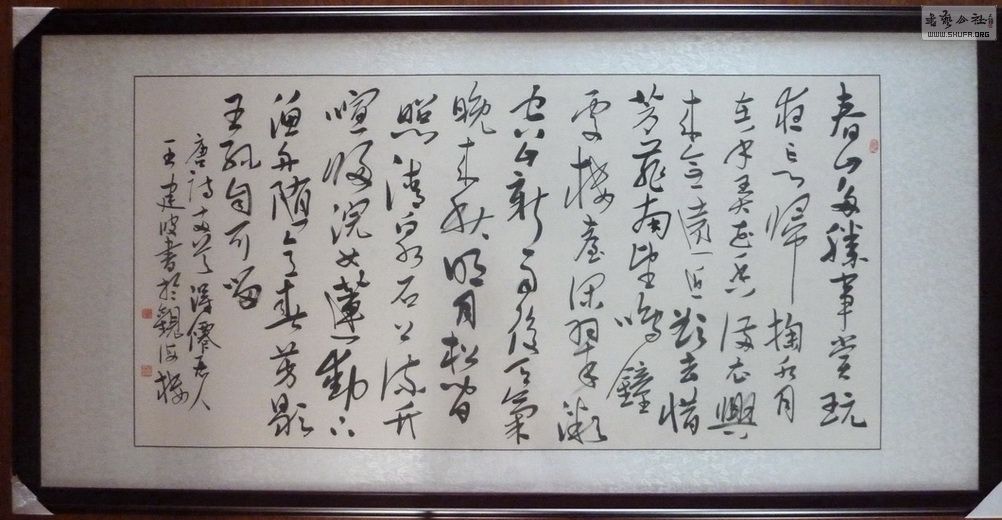 書藝公社
WWW.SHUFA.ORG
春山多勝事賞玩
夜忘歸掬水月
在手弄花香滿衣興
來無遠近欲去惜
芳菲南望鳴鐘
處樓臺深翠微
空山新雨後天氣
晚來秋明月松間
照清泉石上流竹
喧歸浣女蓮動下
漁舟隨意春芳歇
王孫自可留
唐詩
王建波書於觀海樓